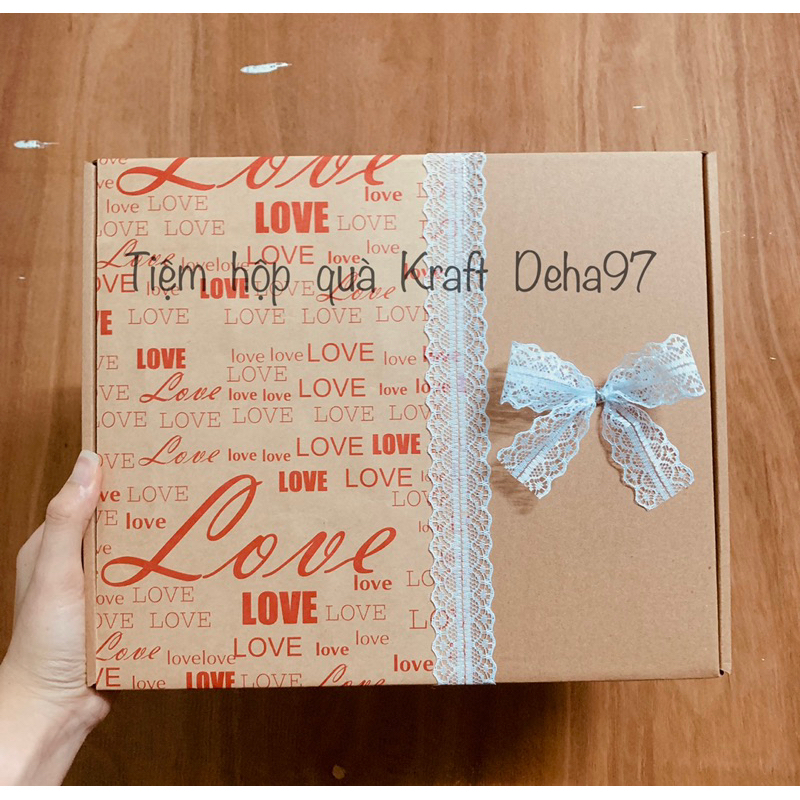 Love
love LOVE love
LOVE LOVE LOVE LOVE
Love LOVE love love
Tiệm hộp quà Kraft Deha97
lovelove LOVE LOVE Love
LOVE LOVE LOVE LOVE
LOVE love love LOVE love
LOVE
Love love love LOVE love
LOVE LOVE LOVE LOVE
Love love love LOVE LOVE
LOVE LOVE
LOVE
love
Love
love
LOVE LOVE LOVE
LOVE LOVE
Love lovelove LOVE love love
love
love LOVE LOVE Love